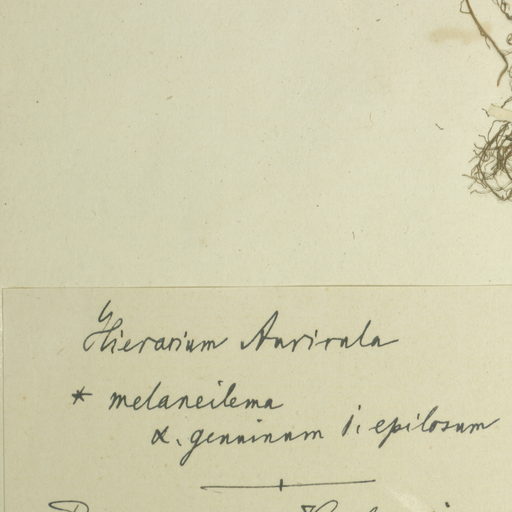 Hieracium Auricula
* melaneilema
α. genuinum 1. epilosum